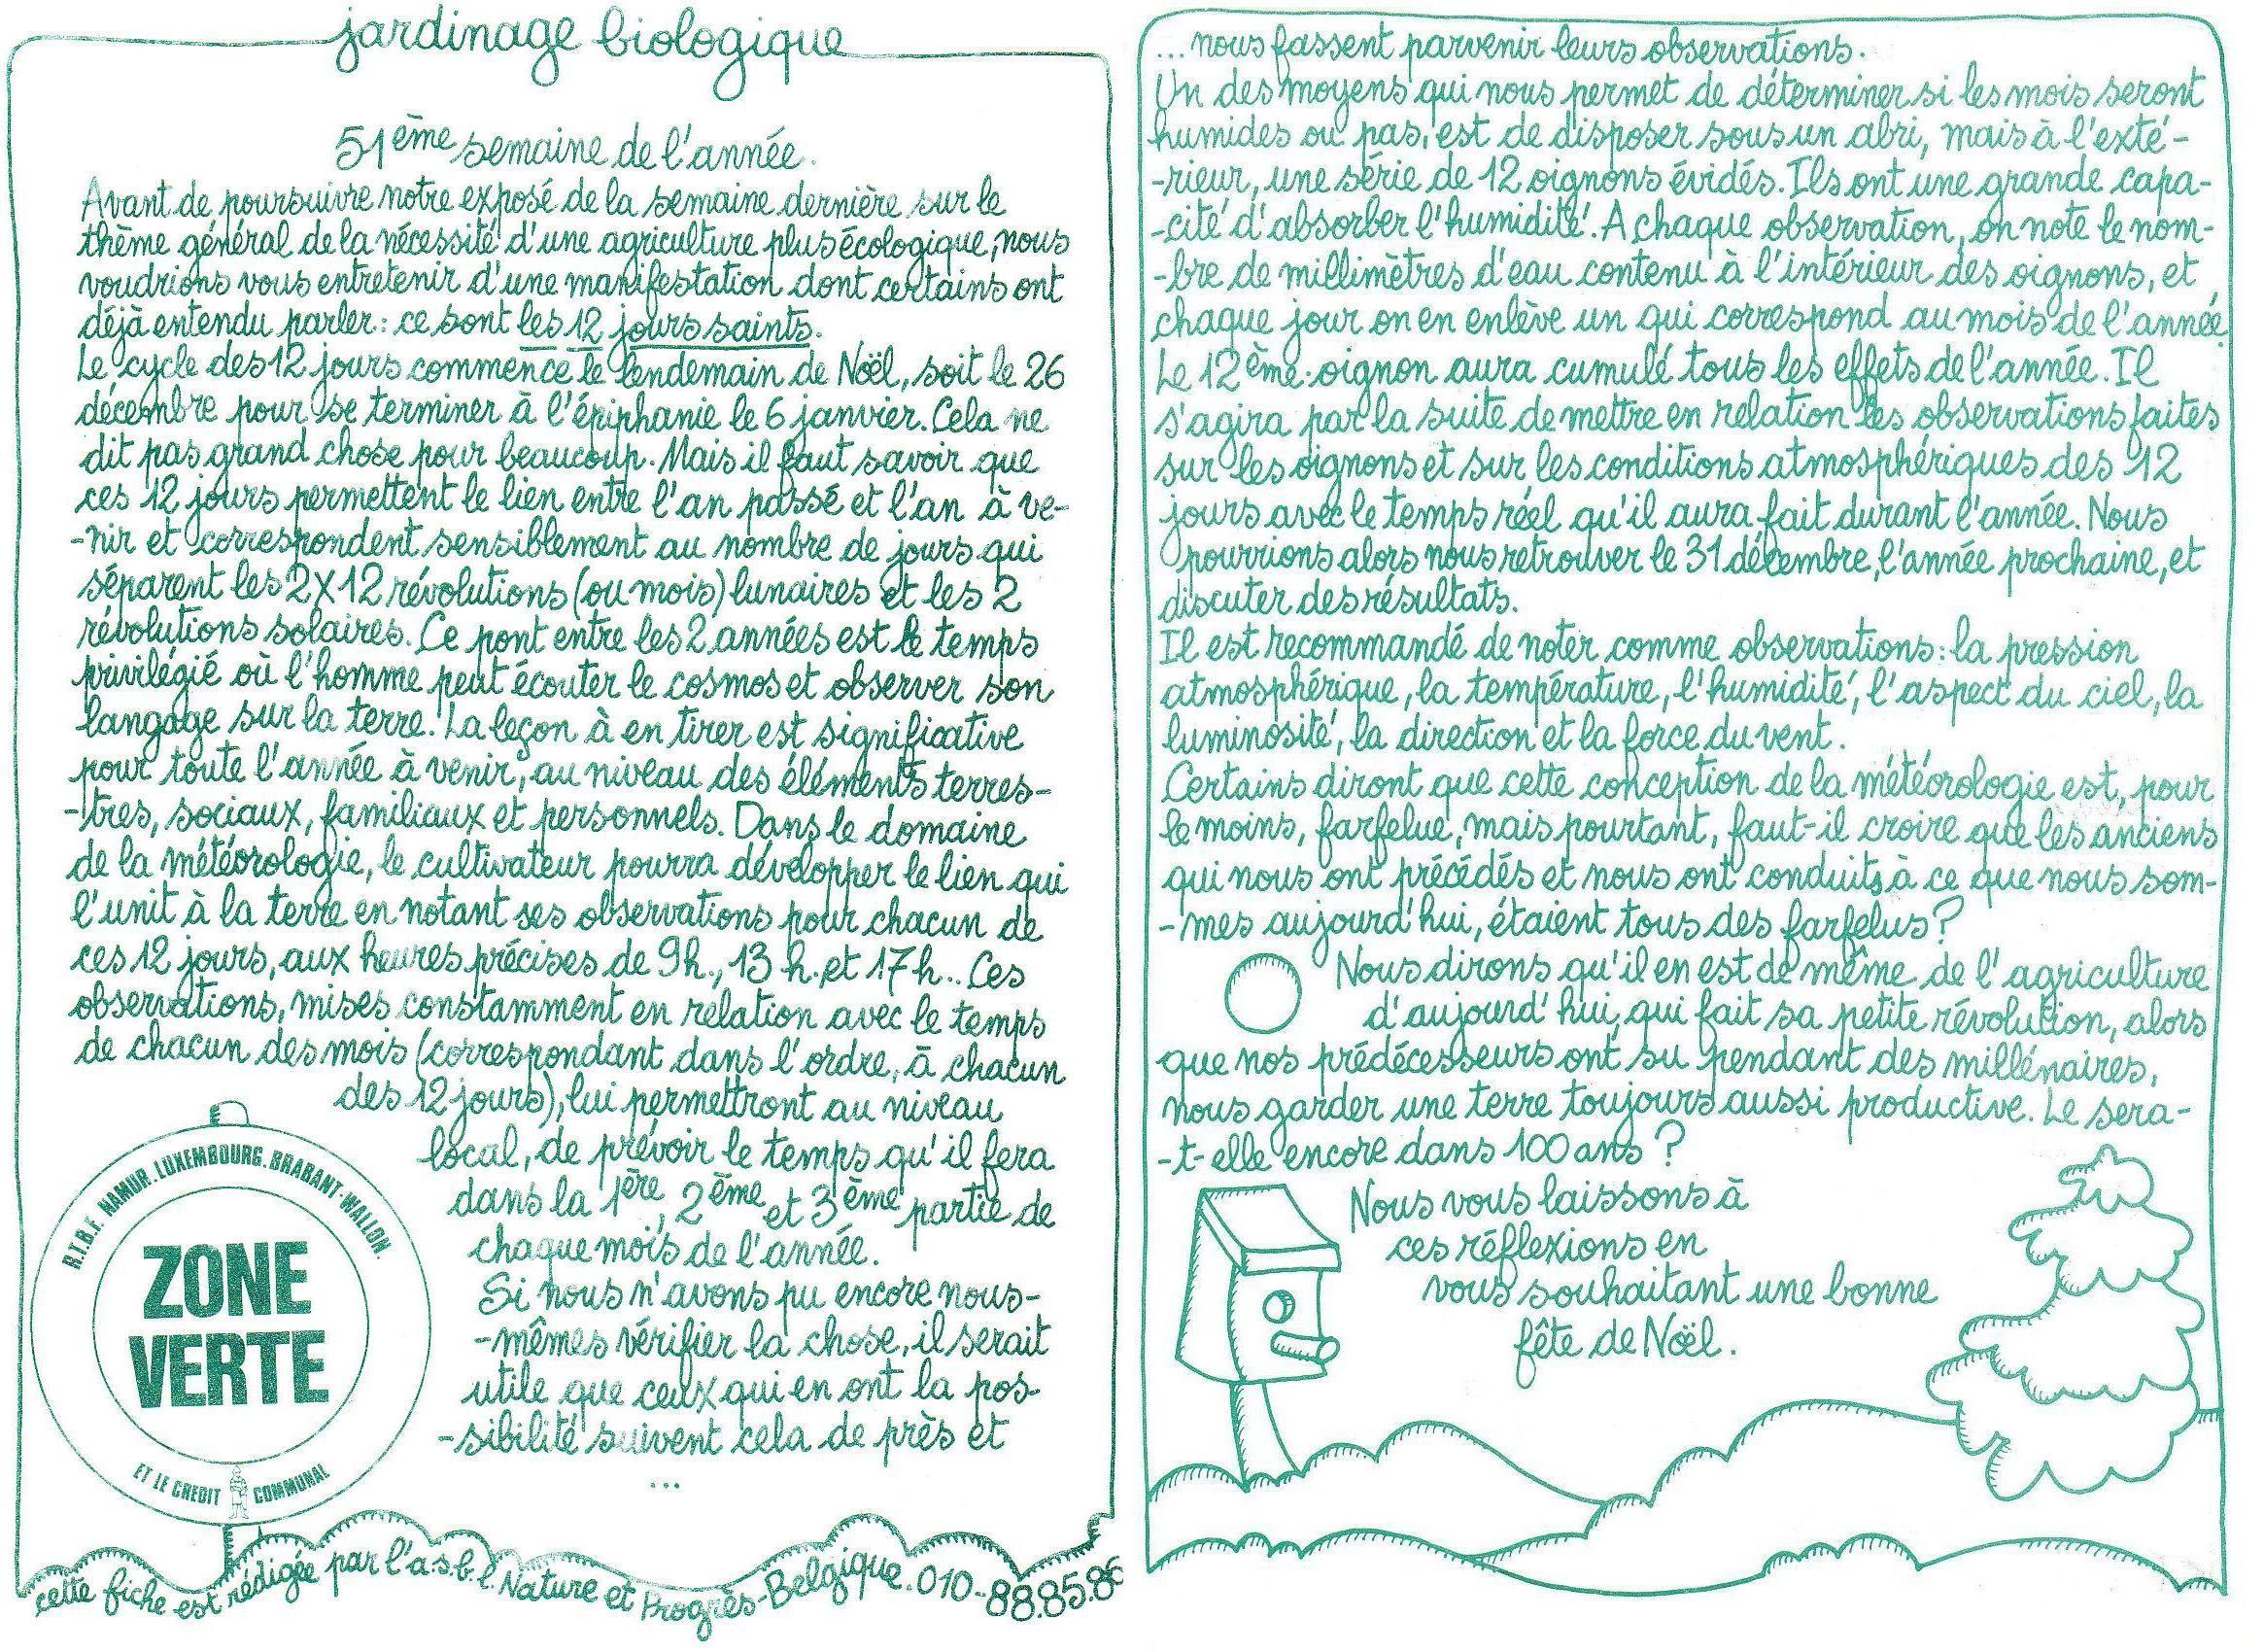 jardinage biologique
51ème semaine de l'année.
Avant de poursuivre notre exposé de la semaine dernière sur le
thème général de la nécessité d'une agriculture plus écologique, nous
voudrions vous entretenir d'une manifestation dont certains ont
déjà entendu parler: ce sont les 12 jours saints.
Le cycle des 12 jours commence le lendemain de Noël, soit le 26
décembre pour se terminer à l'épiphanie le 6 janvier. Cela ne
dit pas grand chose pour beaucoup. Mais il faut savoir que
ces 12 jours permettent le lien entre l'an passé et l'an à ve-
-nir et correspondent sensiblement au nombre de jours qui
séparent les 2X12 révolutions (ou mois) lunaires et les 2
révolutions solaires. Ce pont entre les 2 années est le temps
privilégié où l'homme peut écouter le cosmos et observer son
langage sur la terre. La leçon à en tirer est significative
pour toute l'année à venir, au niveau des éléments terres-
-tres, sociaux, familiaux et personnels. Dans le domaine
de la météorologie, le cultivateur pourra développer le lien qui
l'unit à la terre en notant ses observations pour chacun de
ces 12 jours, aux heures précises de 9h., 13 h. et 17h.. Ces
observations, mises constamment en relation avec le temps
de chacun des mois (correspondant dans l'ordre, à chacun
des 12 jours), lui permettront au niveau
local, de prévoir le temps qu'il fera
dans la 1ère, 2ème et 3ème partie de
chaque mois de l'année.
Si nous n'avons pu encore nous-
-mêmes vérifier la chose, il serait
utile que ceux qui en ont la pos-
-sibilité suivent cela de près et
...
R.T.B.F. NAMUR. LUXEMBOURG. BRABANT-WALLON.
ZONE
VERTE
ET LE CREDIT COMMUNAL
cette fiche est rédigée par l'a.s.b.l. Nature et Progrès-Belgique. 010-88.85.86
... nous fassent parvenir leurs observations.
Un des moyens qui nous permet de déterminer si les mois seront
humides ou pas, est de disposer sous un abri, mais à l'exté-
-rieur, une série de 12 oignons évidés. Ils ont une grande capa-
-cité d'absorber l'humidité. A chaque observation, on note le nom-
-bre de millimètres d'eau contenu à l'intérieur des oignons, et
chaque jour on en enlève un qui correspond au mois de l'année.
Le 12ème. oignon aura cumulé tous les effets de l'année. Il
s'agira par la suite de mettre en relation les observations faites
sur les oignons et sur les conditions atmosphériques des 12
jours avec le temps réel qu'il aura fait durant l'année. Nous
pourrions alors nous retrouver le 31 décembre, l'année prochaine, et
discuter des résultats.
Il est recommandé de noter comme observations: la pression
atmosphérique, la température, l'humidité, l'aspect du ciel, la
luminosité, la direction et la force du vent.
Certains diront que cette conception de la météorologie est, pour
le moins, farfelue, mais pourtant, faut-il croire que les anciens
qui nous ont précédés et nous ont conduits à ce que nous som-
-mes aujourd'hui, étaient tous des farfelus?
Nous dirons qu'il en est de même de l'agriculture
d'aujourd'hui, qui fait sa petite révolution, alors
que nos prédécesseurs ont su pendant des millénaires,
nous garder une terre toujours aussi productive. Le sera-
-t-elle encore dans 100 ans ?
Nous vous laissons à
ces réflexions en
vous souhaitant une bonne
fête de Noël.